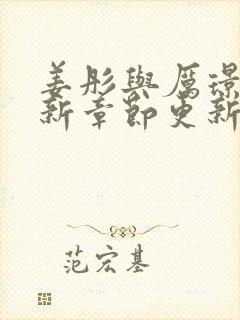 姜彤與厲璟
新章節更新
范宏基